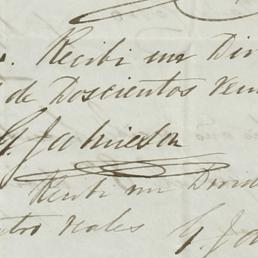 . Recibi un Div
de Doscientos Vein
G. Jamieson
Recibi un Divid
tro reales G. Ja